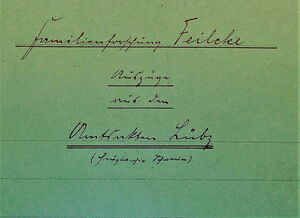 Familienforschung Feilcke
Auszüge
aus den
Amtsakten Lübz
(Hauptarchiv Schwerin)